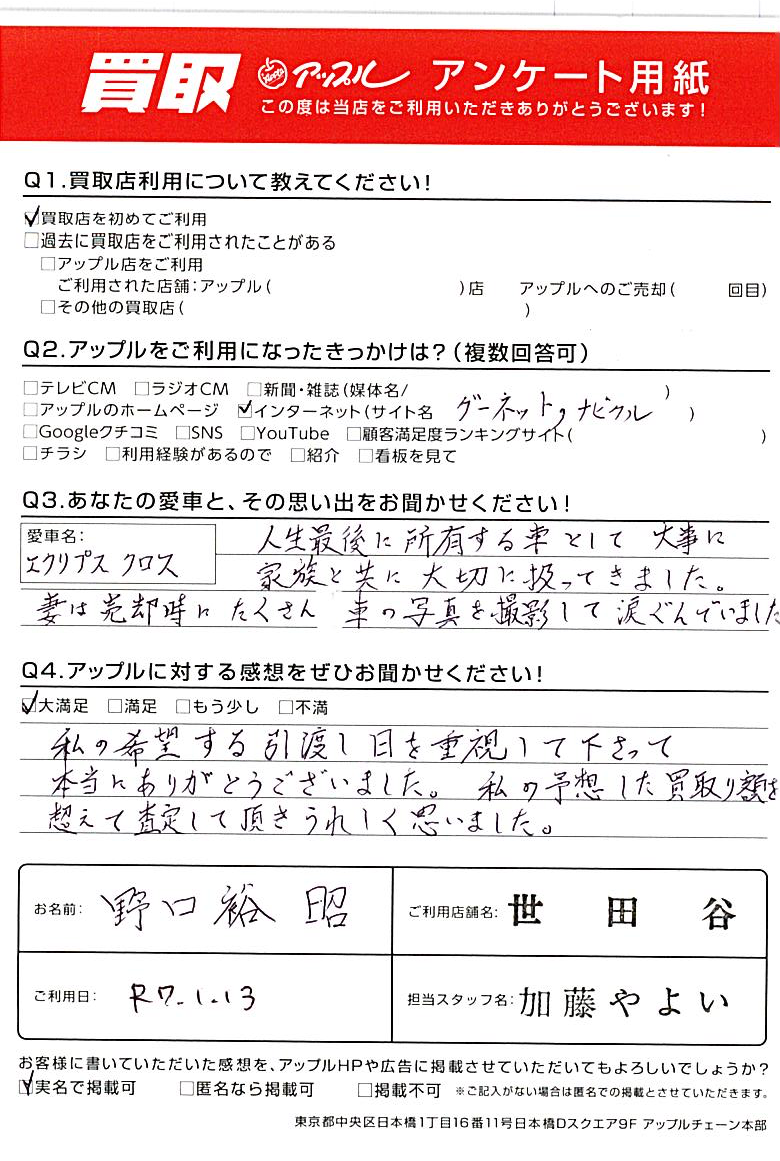 買取 Apple アップル アンケート用紙
この度は当店をご利用いただきありがとうございます!
Q1.買取店利用について教えてください!
☑買取店を初めてご利用
□過去に買取店をご利用されたことがある
□アップル店をご利用
ご利用された店舗:アップル( )店 アップルへのご売却( 回目)
□その他の買取店( )
Q2.アップルをご利用になったきっかけは?(複数回答可)
□テレビCM □ラジオCM □新聞・雑誌(媒体名/ )
□アップルのホームページ ☑インターネット(サイト名 グーネット,ナビクル )
□Googleクチコミ □SNS □YouTube □顧客満足度ランキングサイト( )
□チラシ □利用経験があるので □紹介 □看板を見て
Q3.あなたの愛車と、その思い出をお聞かせください!
愛車名:
エクリプス クロス
人生最後に所有する車として 大事に
家族と共に大切に扱ってきました。
妻は売却時にたくさん 車の写真を撮影して涙ぐんでいました
Q4.アップルに対する感想をぜひお聞かせください!
☑大満足 □満足 □もう少し □不満
私の希望する引渡し日を重視して下さって
本当にありがとうございました。私の予想した買取り額を
超えて査定して頂きうれしく思いました。
お名前: 野口裕昭 ご利用店舗名: 世田谷
ご利用日: R7.1.13 担当スタッフ名: 加藤やよい
お客様に書いていただいた感想を、アップルHPや広告に掲載させていただいてもよろしいでしょうか?
☑実名で掲載可 □匿名なら掲載可 □掲載不可 ※ご記入がない場合は匿名での掲載とさせていただきます。
東京都中央区日本橋1丁目16番11号日本橋Dスクエア9F アップルチェーン本部